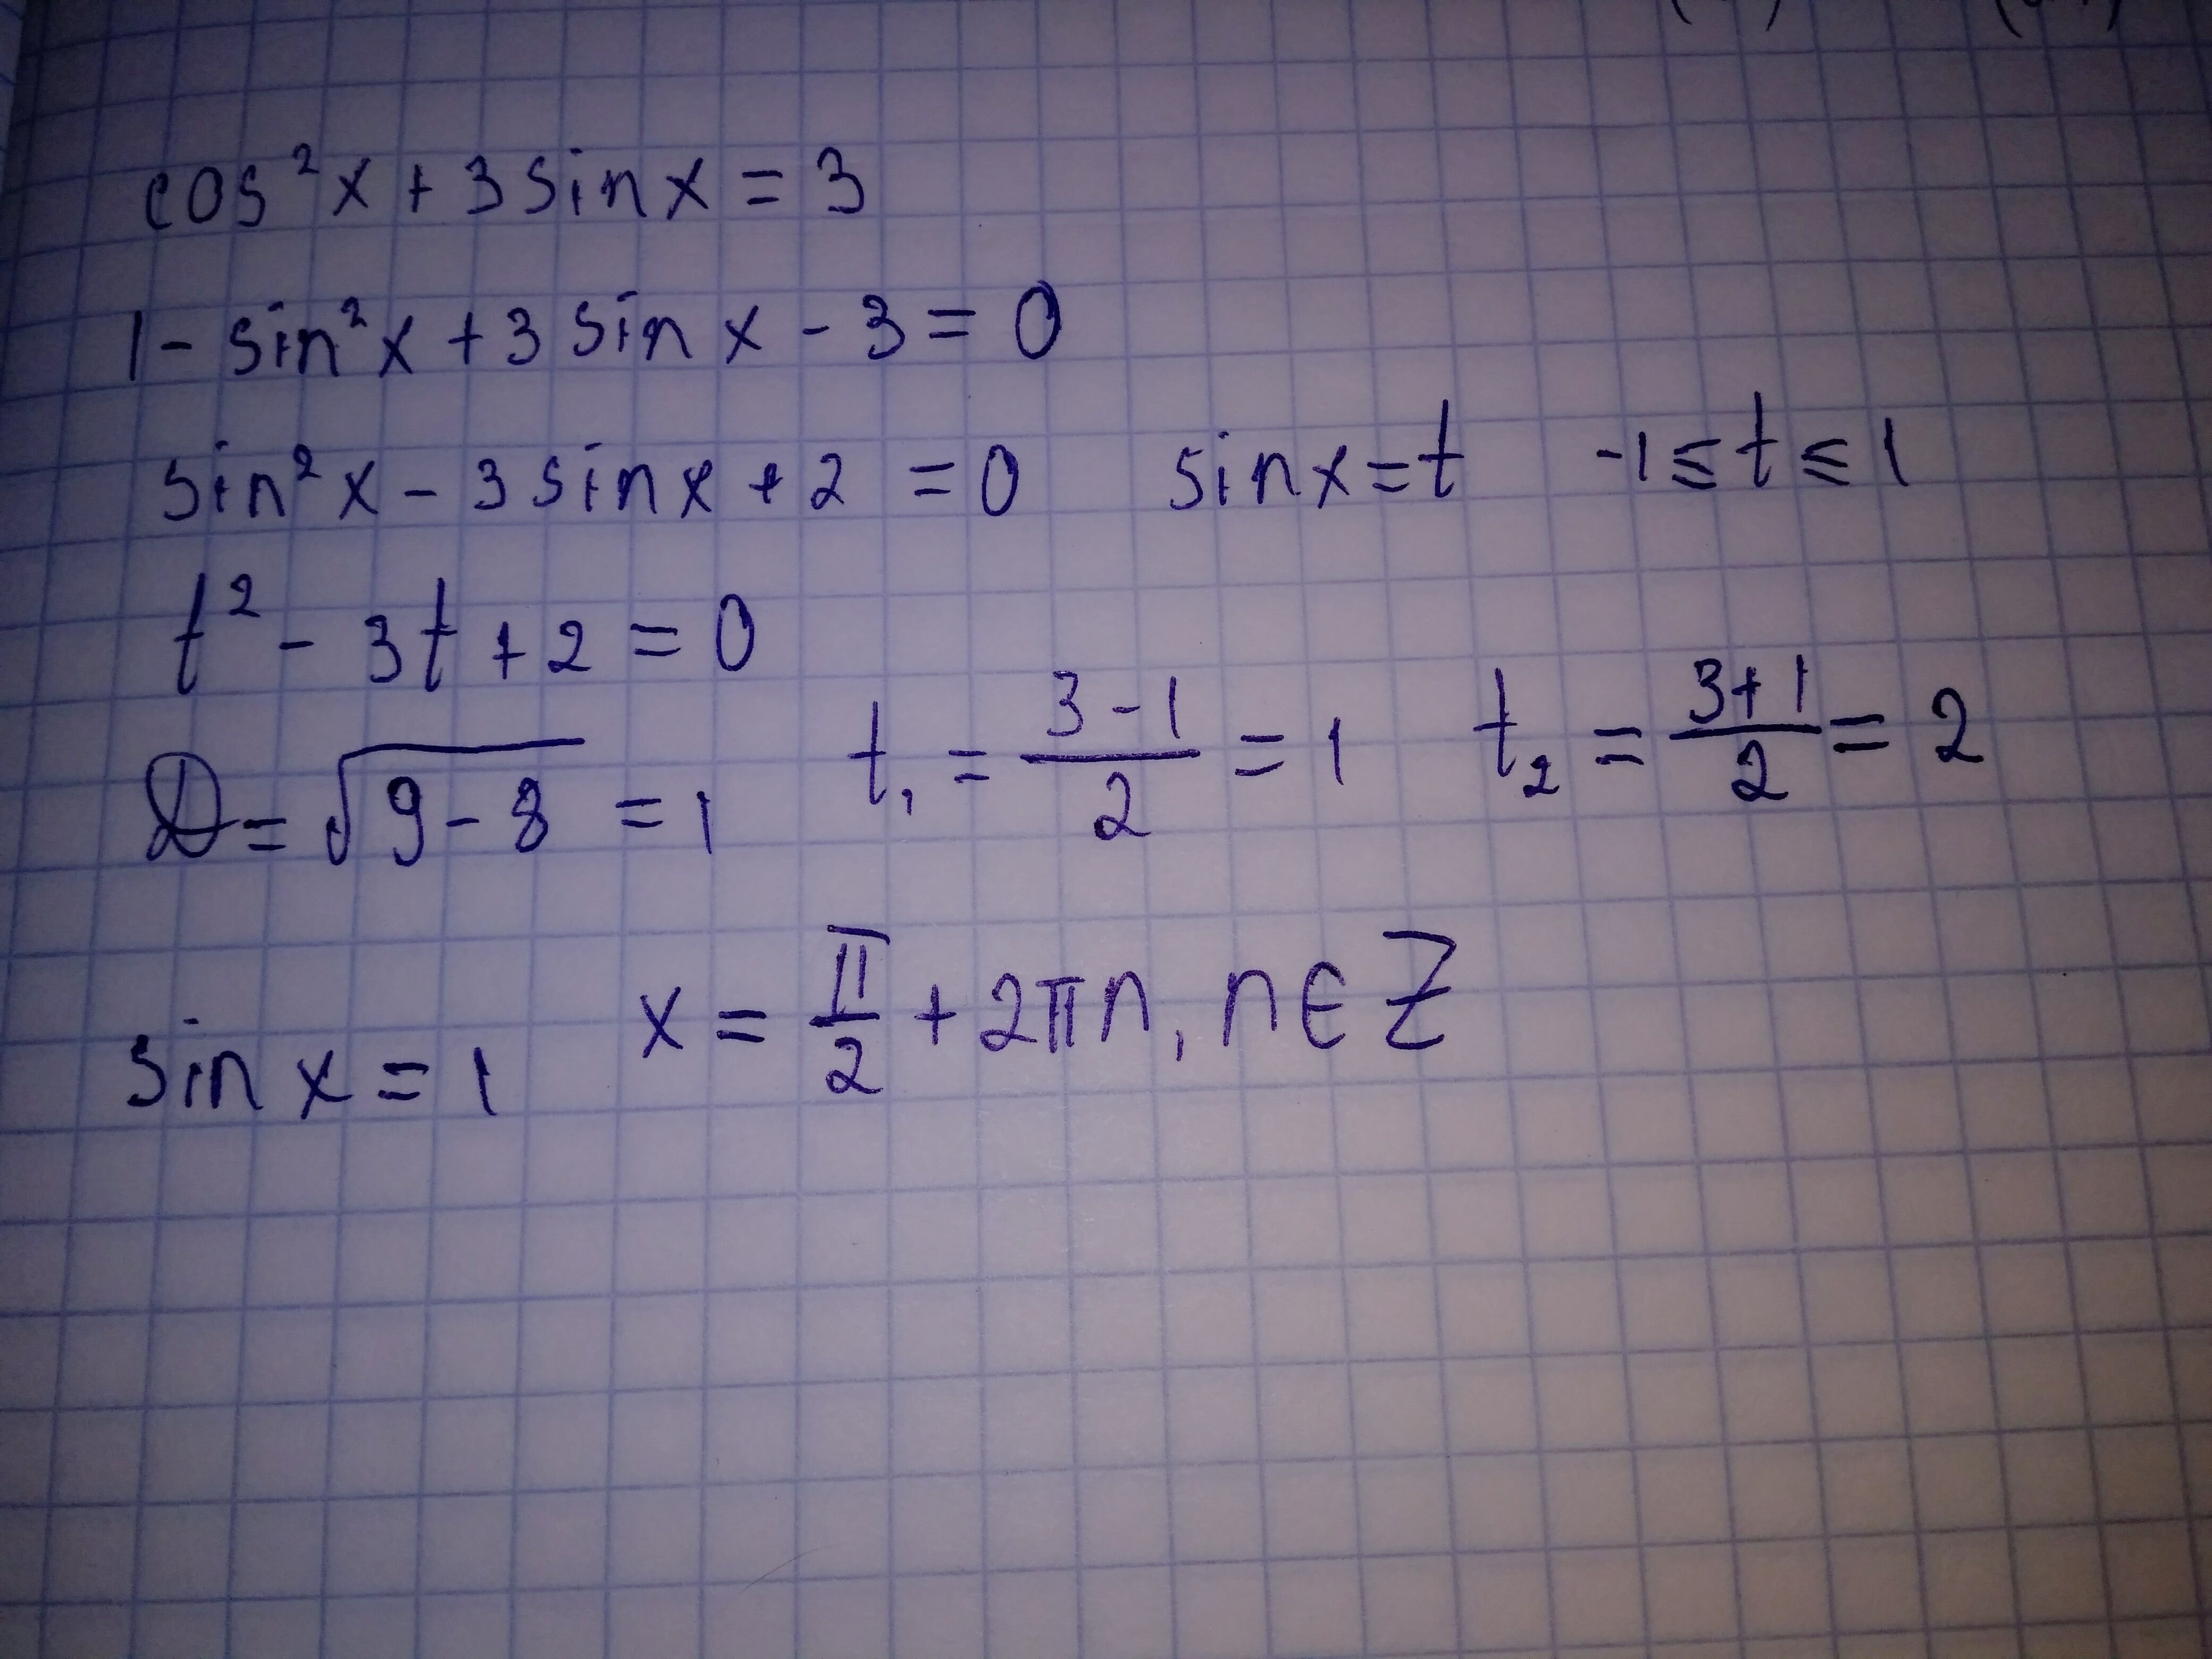 cos²x + 3 sin x = 3
1 - sin²x + 3 sin x - 3 = 0
sin²x - 3 sin x + 2 = 0 sin x = t -1 ≤ t ≤ 1
t² - 3t + 2 = 0
D = √(9 - 8) = 1 t₁ = (3 - 1)/2 = 1 t₂ = (3 + 1)/2 = 2
sin x = 1 x = π/2 + 2πn, n ∈ Z